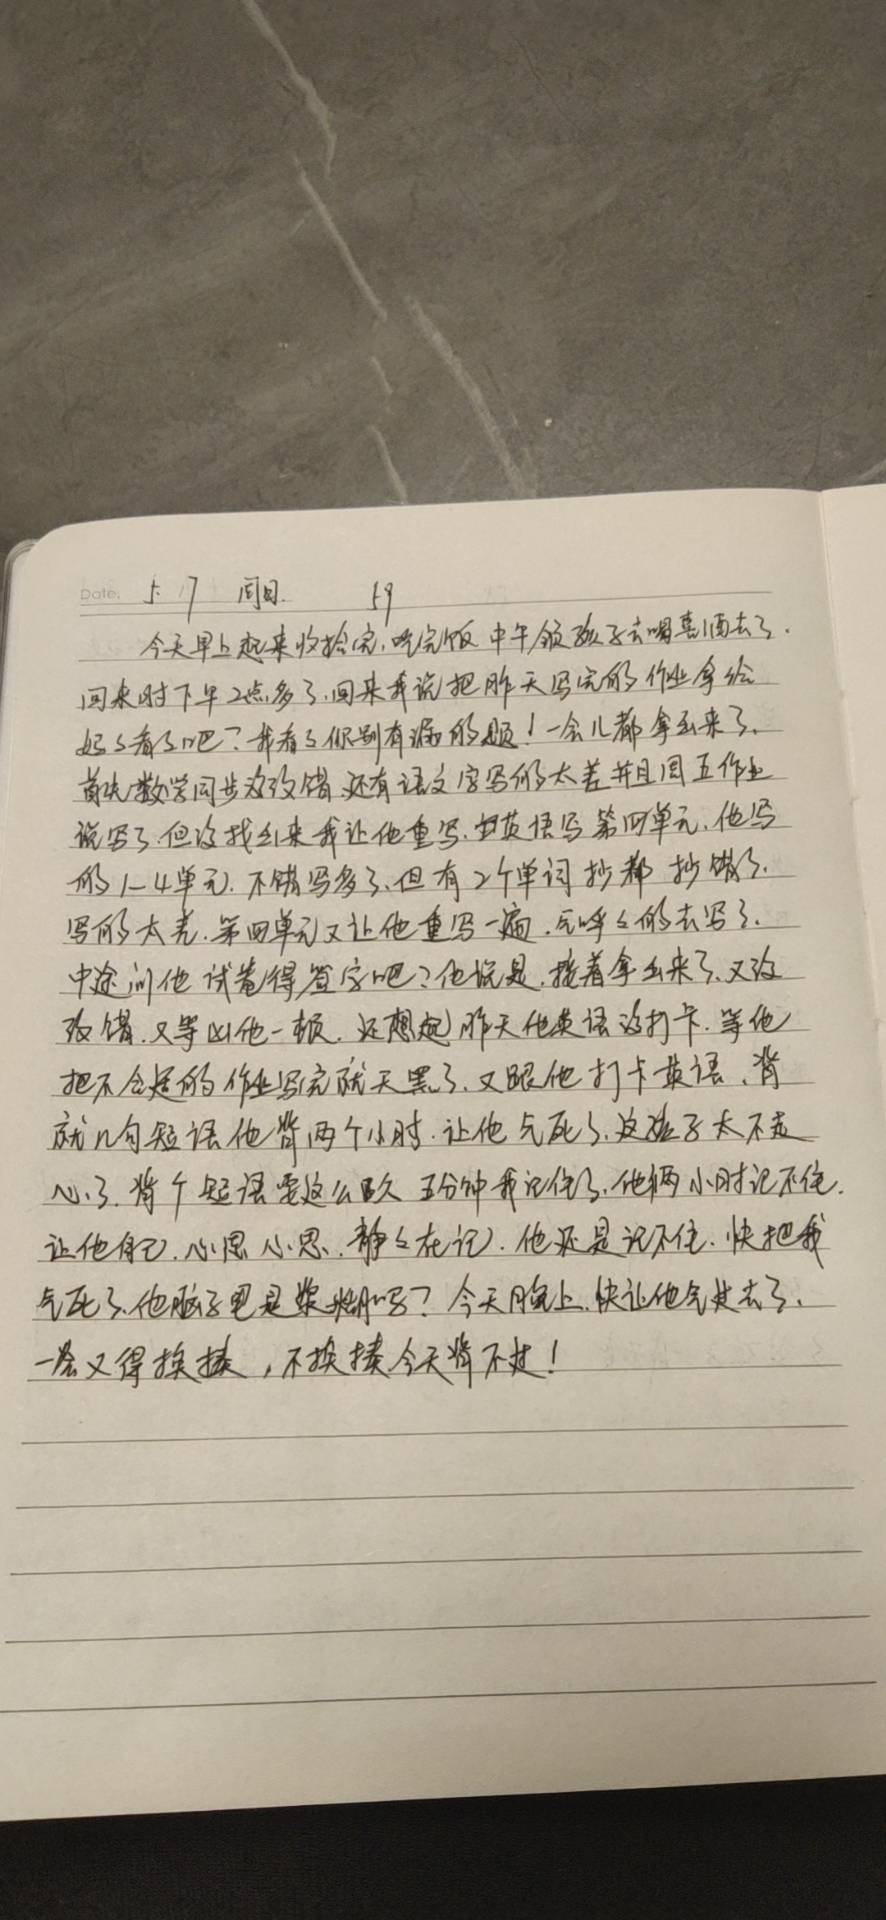 Date: 5.17 周日. 59
今天早上起来收拾完.吃完饭 中午领孩子去喝喜酒去了.
回来时下午2点多了.回来我说把昨天写完的作业拿给
妈妈看了吧?我看了你别有漏的题!一会儿都拿出来了.
首先数学同步没改错 还有语文字写的太差并且周五作业
说写了.但没找出来我让他重写.英语写第四单元.他写
的1-4单元.不错写多了.但有2个单词抄都抄错了.
写的太差.第四单元又让他重写一遍.气呼々的去写了.
中途问他试卷得签字吧?他说是.接着拿出来了.又没
改错.又等凶他一顿.还想起昨天他英语没打卡.等他
把不合适的作业写完就天黑了.又跟他打卡英语.背
就几句短语他背两个小时.让他气死了.这孩子太不走
心了.背个短语要这么久 五分钟我记住了.他俩小时记不住.
让他自己.心思心思.静々在记.他还是记不住.快把我
气死了.他脑子里是浆糊吗?今天晚上.快让他气过去了.
一会又得挨揍,不挨揍今天背不过!